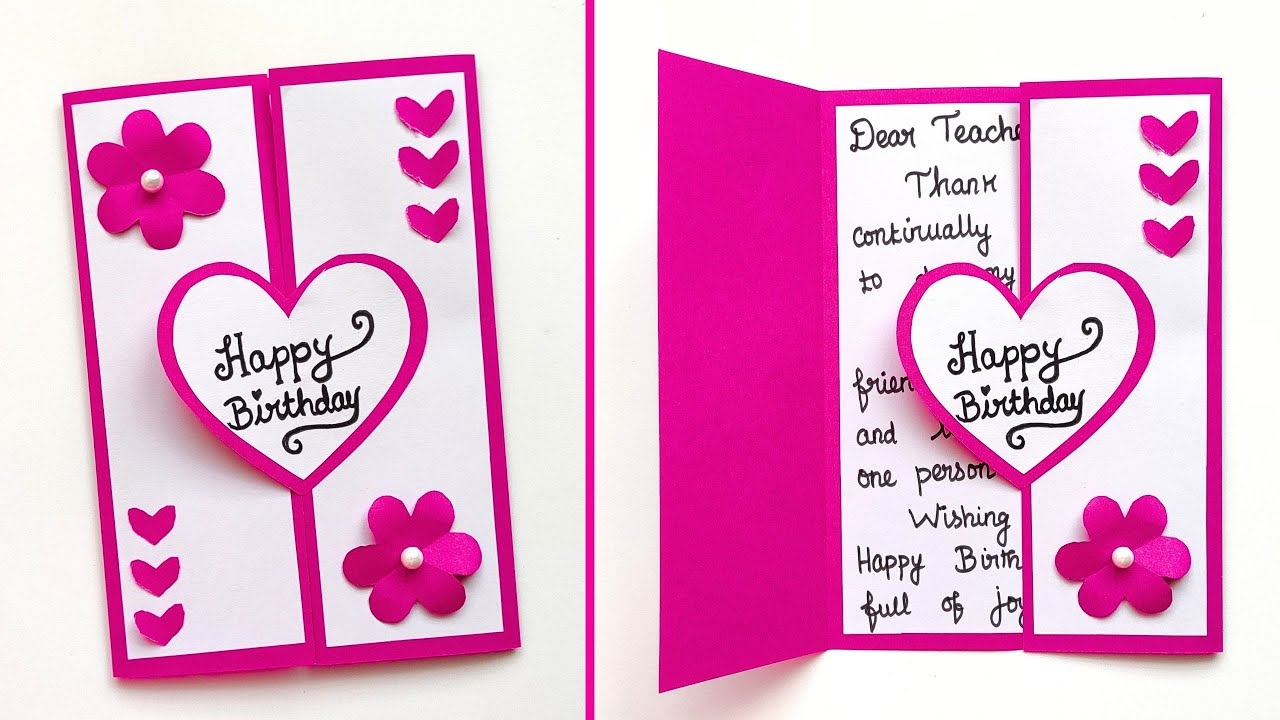 Happy
Birthday
Dear Teache
Thank
continually
to
frien
and
one person
Wishing
Happy Birth
full of joy
Happy
Birthday